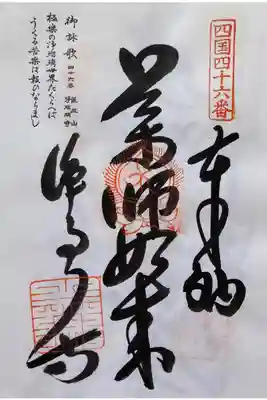 四国四十六番
奉納
薬師如来
浄るり寺
御詠歌
四十六番
医王山
浄瑠璃寺
極楽の浄瑠璃世界たくらへば
うくる苦楽は報ひならまし